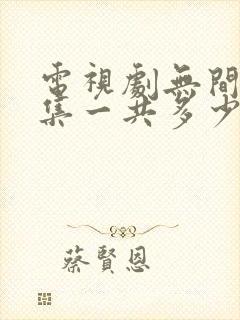 電視劇無間
集一共多少
蔡賢恩